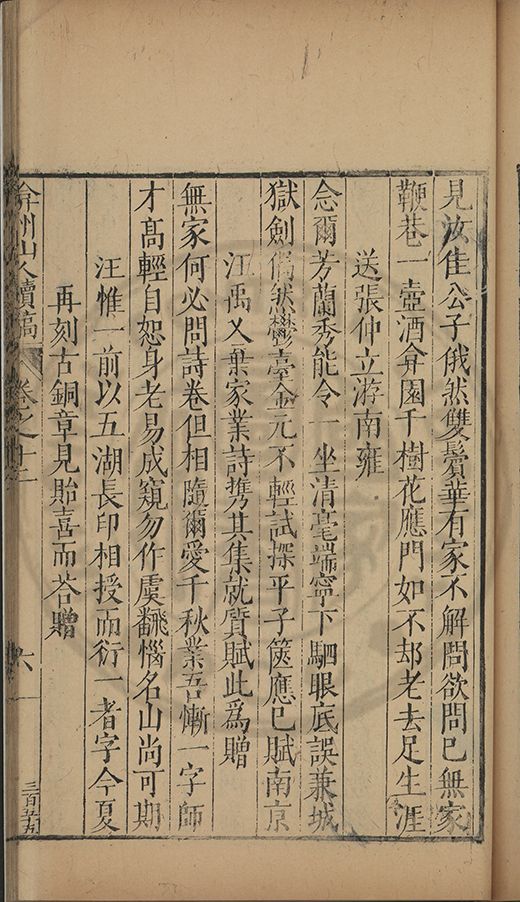 見汝佳公子俄然雙鬢華有家不解問欲問已無家
鞭巷一壺酒弇園千樹花應門如不却老去足生涯
送張仲立游南雍
念爾芳蘭秀能令一坐清毫端寧下駟眼底誤兼城
獄劍偶然鬱臺金元不輕試探平子篋應已賦南京
汪禹乂棄家業詩携其集就質賦此為贈
無家何必問詩卷但相隨爾愛千秋業吾慚一字師
才高輕自恕身老易成窺勿作虞翻惱名山尚可期
汪惟一前以五湖長印相授而衍一者字今夏
再刻古銅章見貽喜而荅贈
弇州山人續稿 卷之十二 六
三百五十九